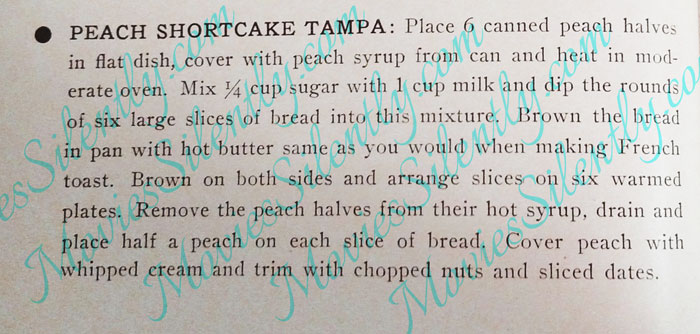 ● PEACH SHORTCAKE TAMPA: Place 6 canned peach halves
in flat dish, cover with peach syrup from can and heat in mod-
erate oven. Mix ¼ cup sugar with 1 cup milk and dip the rounds
of six large slices of bread into this mixture. Brown the bread
in pan with hot butter same as you would when making French
toast. Brown on both sides and arrange slices on six warmed
plates. Remove the peach halves from their hot syrup, drain and
place half a peach on each slice of bread. Cover peach with
whipped cream and trim with chopped nuts and sliced dates.
MoviesSilently.com
MoviesSilently.com
MoviesSilently.com
MoviesSilently.com
MoviesSilently.com